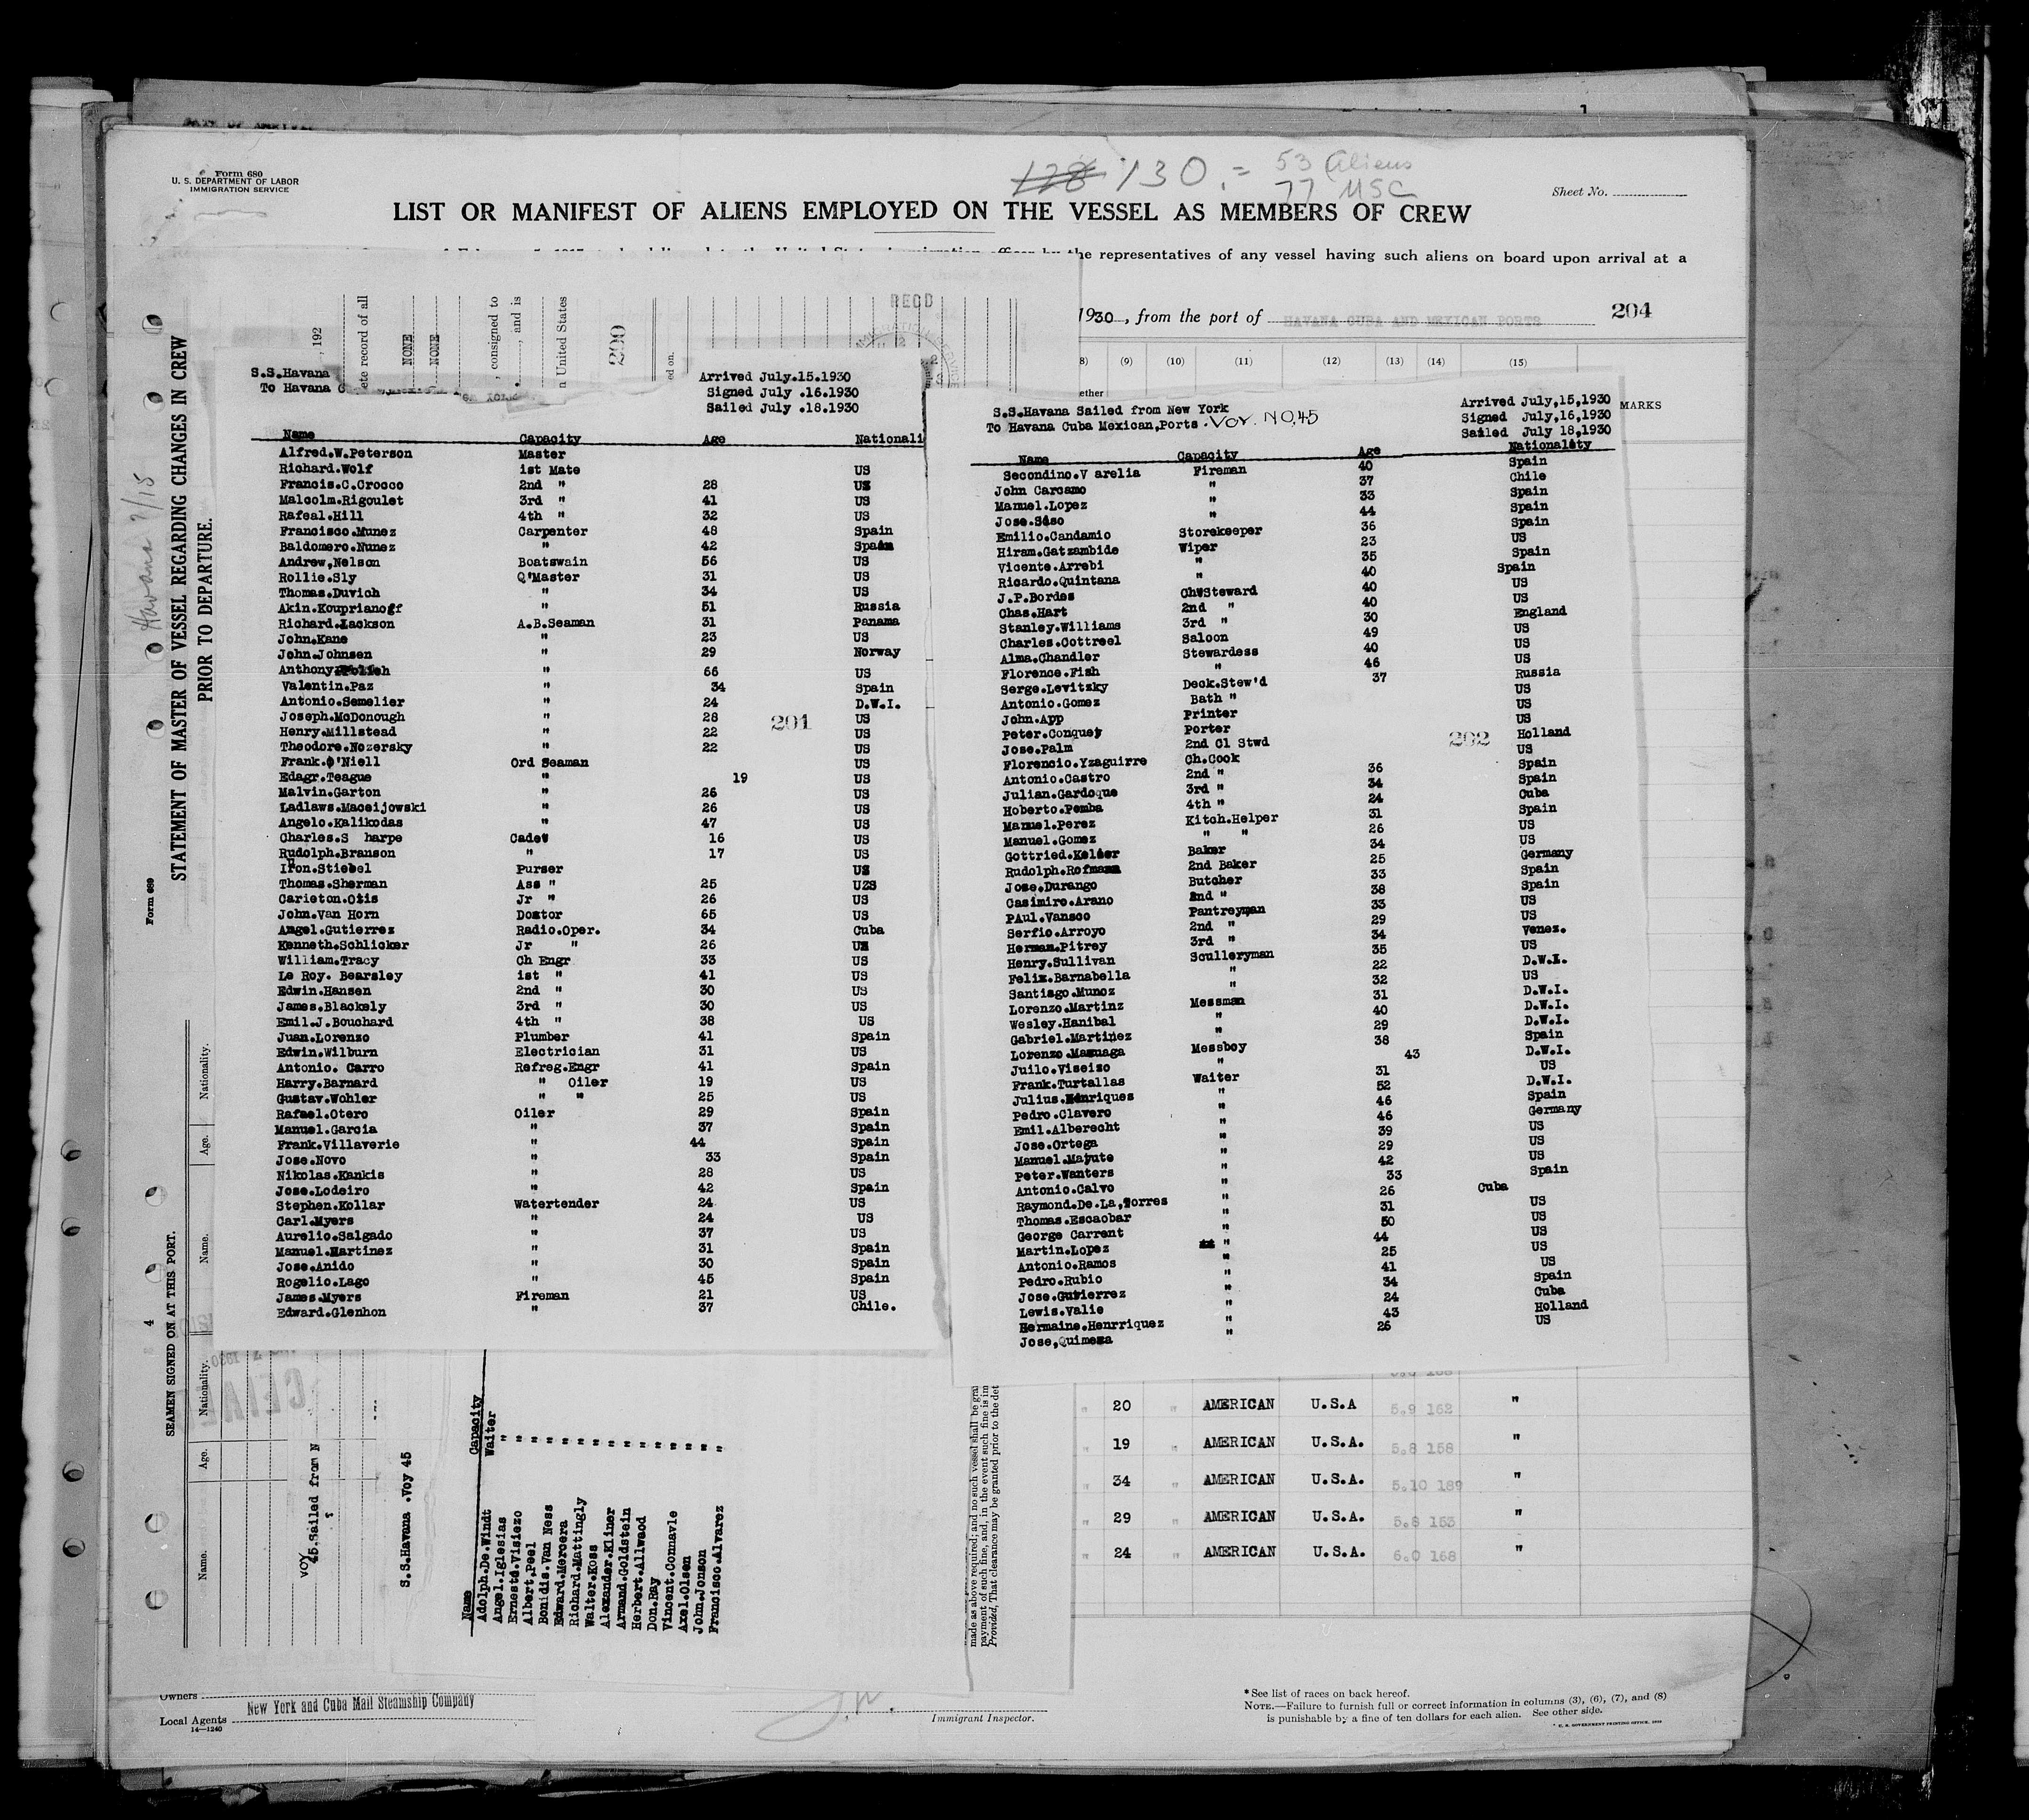 Form 680
U. S. DEPARTMENT OF LABOR
IMMIGRATION SERVICE
128 130. = 53 Aliens
77 USC
Sheet No.
LIST OR MANIFEST OF ALIENS EMPLOYED ON THE VESSEL AS MEMBERS OF CREW
the representatives of any vessel having such aliens on board upon arrival at a
1930, from the port of HAVANA CUBA AND MEXICAN PORTS 204
(9) (10) (11) (12) (13) (14) (15)
ether
MARKS
, 192
ete record of all
NONE
NONE
, consigned to
, and is
n United States
299
ed on.
RECD
S.S.Havana
To Havana
Arrived July.15.1930
Signed July .16.1930
Sailed July .18.1930
Name Capacity Age Nationali
Alfred.W.Peterson Master
Richard.Wolf 1st Mate US
Francis.C.Crocco 2nd " 28 US
Malcolm.Rigoulet 3rd " 41 US
Rafeal.Hill 4th " 32 US
Francisco.Munez Carpenter 48 Spain
Baldomero.Nunez " 42 Spain
Andrew,Nelson Boatswain 56 US
Rollie.Sly Q'Master 31 US
Thomas.Duvich " 34 US
Akin.Kouprianoff " 51 Russia
Richard.Lackson A.B.Seaman 31 Panama
John.Kane " 23 US
John.Johnsen " 29 Norway
Anthony " 66 US
Valentin.Paz " 34 Spain
Antonio.Semelier " 24 D.W.I.
Joseph.McDonough " 28 US
201
Henry.Millstead " 22 US
Theodore.Nozersky " 22 US
Frank.O'Niell Ord Seaman US
Edagr.Teague " 19 US
Malvin.Garton " 26 US
Ladlaws.Maceijowski " 26 US
Angelo.Kalikodas " 47 US
Charles.S harpe Cadet 16 US
Rudolph.Branson " 17 US
Iron.Stiebel Purser US
Thomas.Sherman Ass " 25 UZS
Carleton.Otis Jr " 26 US
John.Van Horn Doctor 65 US
Angel.Gutierrez Radio.Oper. 34 Cuba
Kenneth.Schlicker Jr " 26 US
William.Tracy Ch Engr 33 US
Le Roy. Bearsley 1st " 41 US
Edwin.Hansen 2nd " 30 US
James.Blackely 3rd " 30 US
Emil.J.Bouchard 4th " 38 US
Juan.Lorenzo Plumber 41 Spain
Edwin.Wilburn Electrician 31 US
Antonio. Carro Refreg.Engr 41 Spain
Harry.Barnard " Oiler 19 US
Gustav.Wohler " " 25 US
Rafael.Otero Oiler 29 Spain
Manuel.Garcia " 37 Spain
Frank.Villaverie " 44 Spain
Jose.Novo " 33 Spain
Nikolas.Kankis " 28 US
Jose.Lodeiro " 42 Spain
Stephen.Kollar Watertender 24 US
Carl.Myers " 24 US
Aurelio.Salgado " 37 US
Manuel.Martinez " 31 Spain
Jose.Anido " 30 Spain
Rogelio.Lago " 45 Spain
James.Myers Fireman 21 US
Edward.Glenhon " 37 Chile.
S.S.Havana Sailed from New York
To Havana Cuba Mexican,Ports . Voy. NO.45
Arrived July,15,1930
Signed July,16,1930
Sailed July 18,1930
Name Capacity Age Nationality
Secondino.V arelia Fireman 40 Spain
John Carcamo " 37 Chile
Manuel.Lopez " 33 Spain
Jose.Siso " 44 Spain
Emilio.Candamio Storekeeper 36 Spain
Hiram.Gatzambide Wiper 23 US
Vicente.Arrebi " 35 Spain
Ricardo.Quintana " 40 Spain
J.P.Bordes Ch#Steward 40 US
Chas.Hart 2nd " 40 US
Stanley.Williams 3rd " 30 England
Charles.Cottreel Saloon 49 US
Alma.Chandler Stewardess 40 US
Florence.Fish " 46 US
Serge.Levitzky Deck.Stew'd 37 Russia
Antonio.Gomez Bath " US
John.App Printer US
Peter.Conquey Porter US
202
Jose.Palm 2nd Cl Stwd Holland
Florencio.Yzaguirre Ch.Cook US
Antonio.Castro 2nd " 36 Spain
Julian.Gardoque 3rd " 34 Spain
Hoberto.Pemba 4th " 24 Cuba
Manuel.Perez Kitch.Helper 31 Spain
Manuel.Gomez " " 26 US
Gottried.Kelser Baker 34 US
Rudolph.Rofmann 2nd Baker 25 Germany
Jose.Durango Butcher 33 Spain
Casimiro.Arano 2nd " 38 Spain
PAul.Vansco Pantreyman 33 US
Serfio.Arroyo 2nd " 29 US
Herman.Pitrey 3rd " 34 Venez.
Henry.Sullivan Sculleryman 35 US
Felix.Barnabella " 22 D.W.I.
Santiago.Munoz " 32 US
Lorenzo.Martinz Messman 31 D.W.I.
Wesley.Hanibal " 40 D.W.I.
Gabriel.Martinez " 29 D.W.I.
Lorenzo.Masnaga Messboy 38 Spain
Juilo.Viseizo " 43 D.W.I.
Frank.Turtallas Waiter 31 US
Julius.Henriques " 52 D.W.I.
Pedro.Clavero " 46 Spain
Emil.Alberecht " 46 Germany
Jose.Ortega " 39 US
Manuel.Matute " 29 US
Peter.Wanters " 42 US
Antonio.Calvo " 33 Spain
Raymond.De.La,Torres " 26 Cuba
Thomas.Escaobar " 31 US
George Carrent " 50 US
Martin.Lopez " 44 US
Antonio.Ramos " 25 US
Pedro.Rubio " 41 US
Jose.Gutierrez " 34 Spain
Lewis.Valie " 24 Cuba
Hermaine.Henrriquez " 43 Holland
Jose,Quimeza " 26 US
Havana 7/15
Form 689
STATEMENT OF MASTER OF VESSEL REGARDING CHANGES IN CREW
PRIOR TO DEPARTURE.
4
SEAMEN SIGNED ON AT THIS PORT.
Name. Age. Nationality. Name. Age. Nationality.
voy
45.Sailed from N
S.S.Havana .Voy 45
Name Capacity
Adolph.De.Windt Waiter
Angel.Iglesias "
Ernesto.Visiezo "
Albert,Peel "
Bonidis.Van Ness "
Edward.Mercera "
Richard.Mattingly "
Walter.Koss "
Alexander.Kliner "
Armand.Goldstein "
Herbert.Allwood "
Don.Ray "
Vincent.Connavle "
Axel.Olsen "
John.Jonson "
Francisco.Alvarez "
made as above required; and no such vessel shall be gra
payment of such fine, and, in the event such fine is im
Provided, That clearance may be granted prior to the det
" 20 " AMERICAN U.S.A 5.9 162 "
" 19 " AMERICAN U.S.A. 5.8 158 "
" 34 " AMERICAN U.S.A. 5.10 189 "
" 29 " AMERICAN U.S.A. 5.8 153 "
" 24 " AMERICAN U.S.A. 6.0 168 "
Owners
New York and Cuba Mail Steamship Company
Local Agents
14—1240
Immigrant Inspector.
* See list of races on back hereof.
NOTE.—Failure to furnish full or correct information in columns (3), (6), (7), and (8)
is punishable by a fine of ten dollars for each alien. See other side.
U. S. GOVERNMENT PRINTING OFFICE